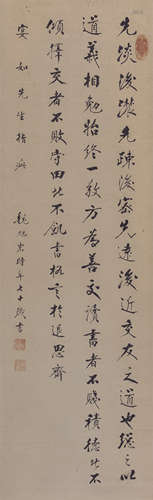 先淡後濃先疎後密先遠後近交友之道也総之以
道義相勉始終一致方為善交讀書者不賤積德者不
傾擇交者不敗守田者不飢書格言於退思齋
宴如先生指疵
 年七十 書